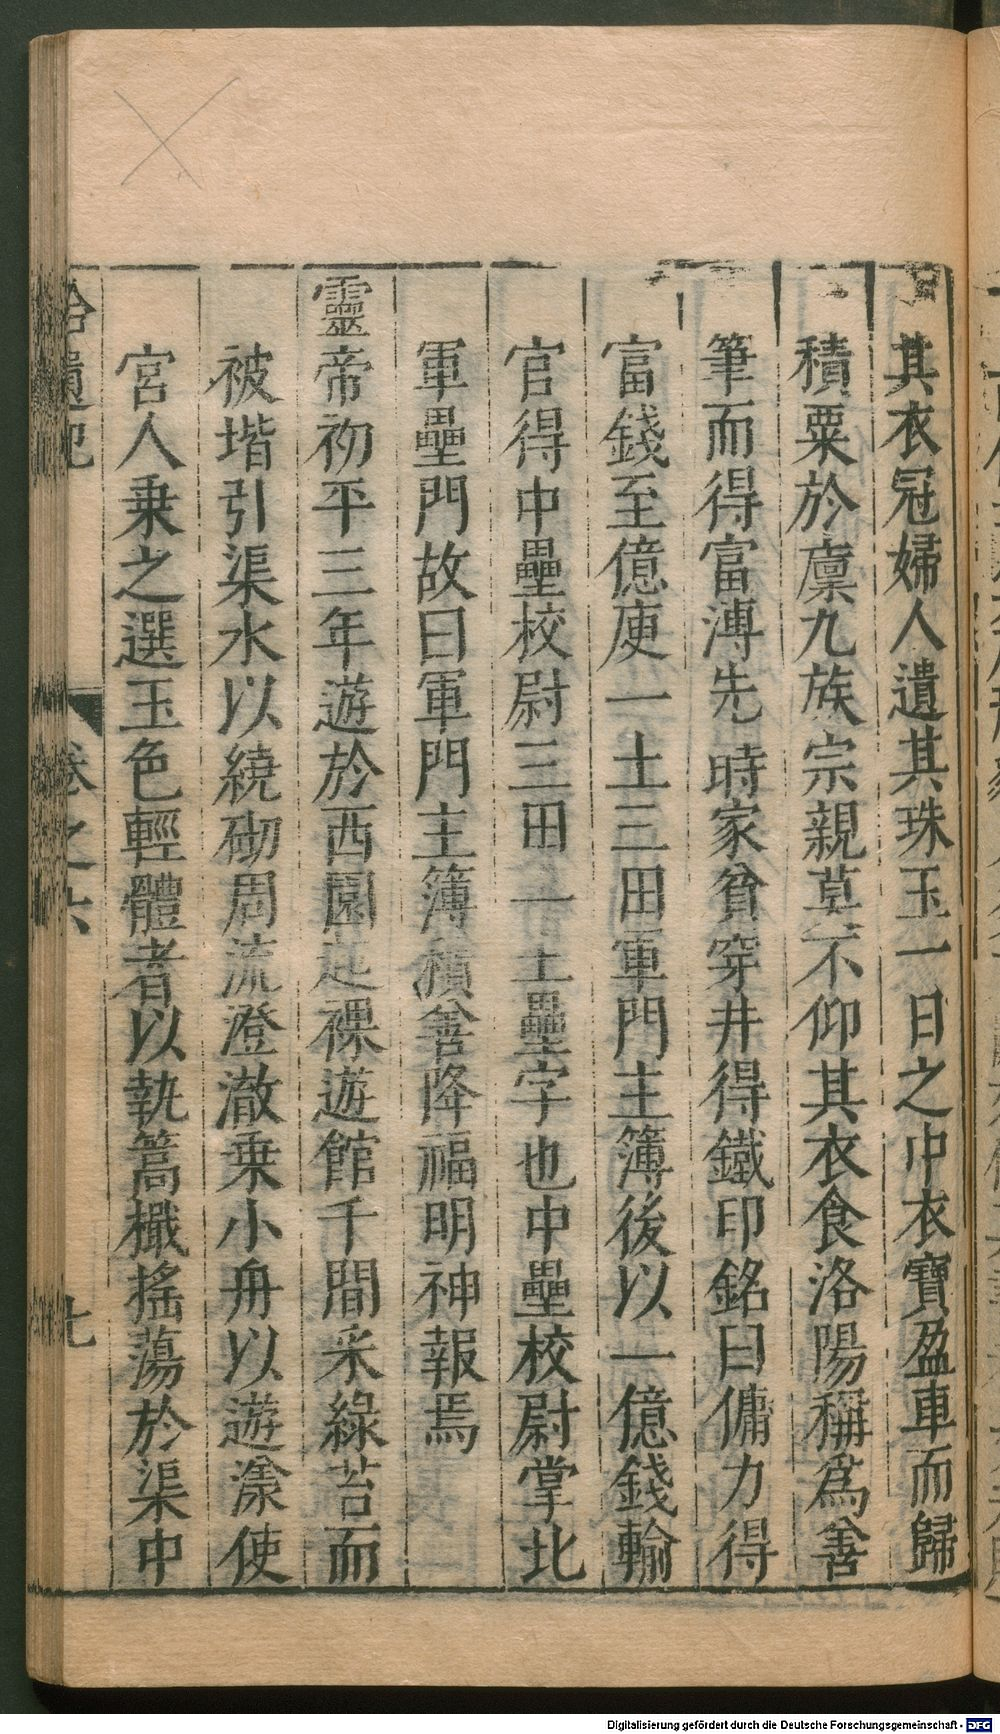 其衣冠婦人遺其珠玉一日之中衣寶盈車而歸
積粟於廩九族宗親莫不仰其衣食洛陽稱爲善
筆而得富溥先時家貧穿井得鐵印銘曰傭力得
富錢至億庾一土三田軍門主簿後以一億錢輸
官得中壘校尉三田一土壘字也中壘校尉掌北
軍壘門故曰軍門主簿積善降福明神報焉
靈帝初平三年遊於西園起裸遊館千間釆綠苔而
被堦引渠水以繞砌周流澄澈乗小舟以遊漾使
宮人乗之選玉色輕體者以執篙檝搖蕩於渠中
拾遺記 卷之六 七
Digitalisierung gefördert durch die Deutsche Forschungsgemeinschaft - DFG